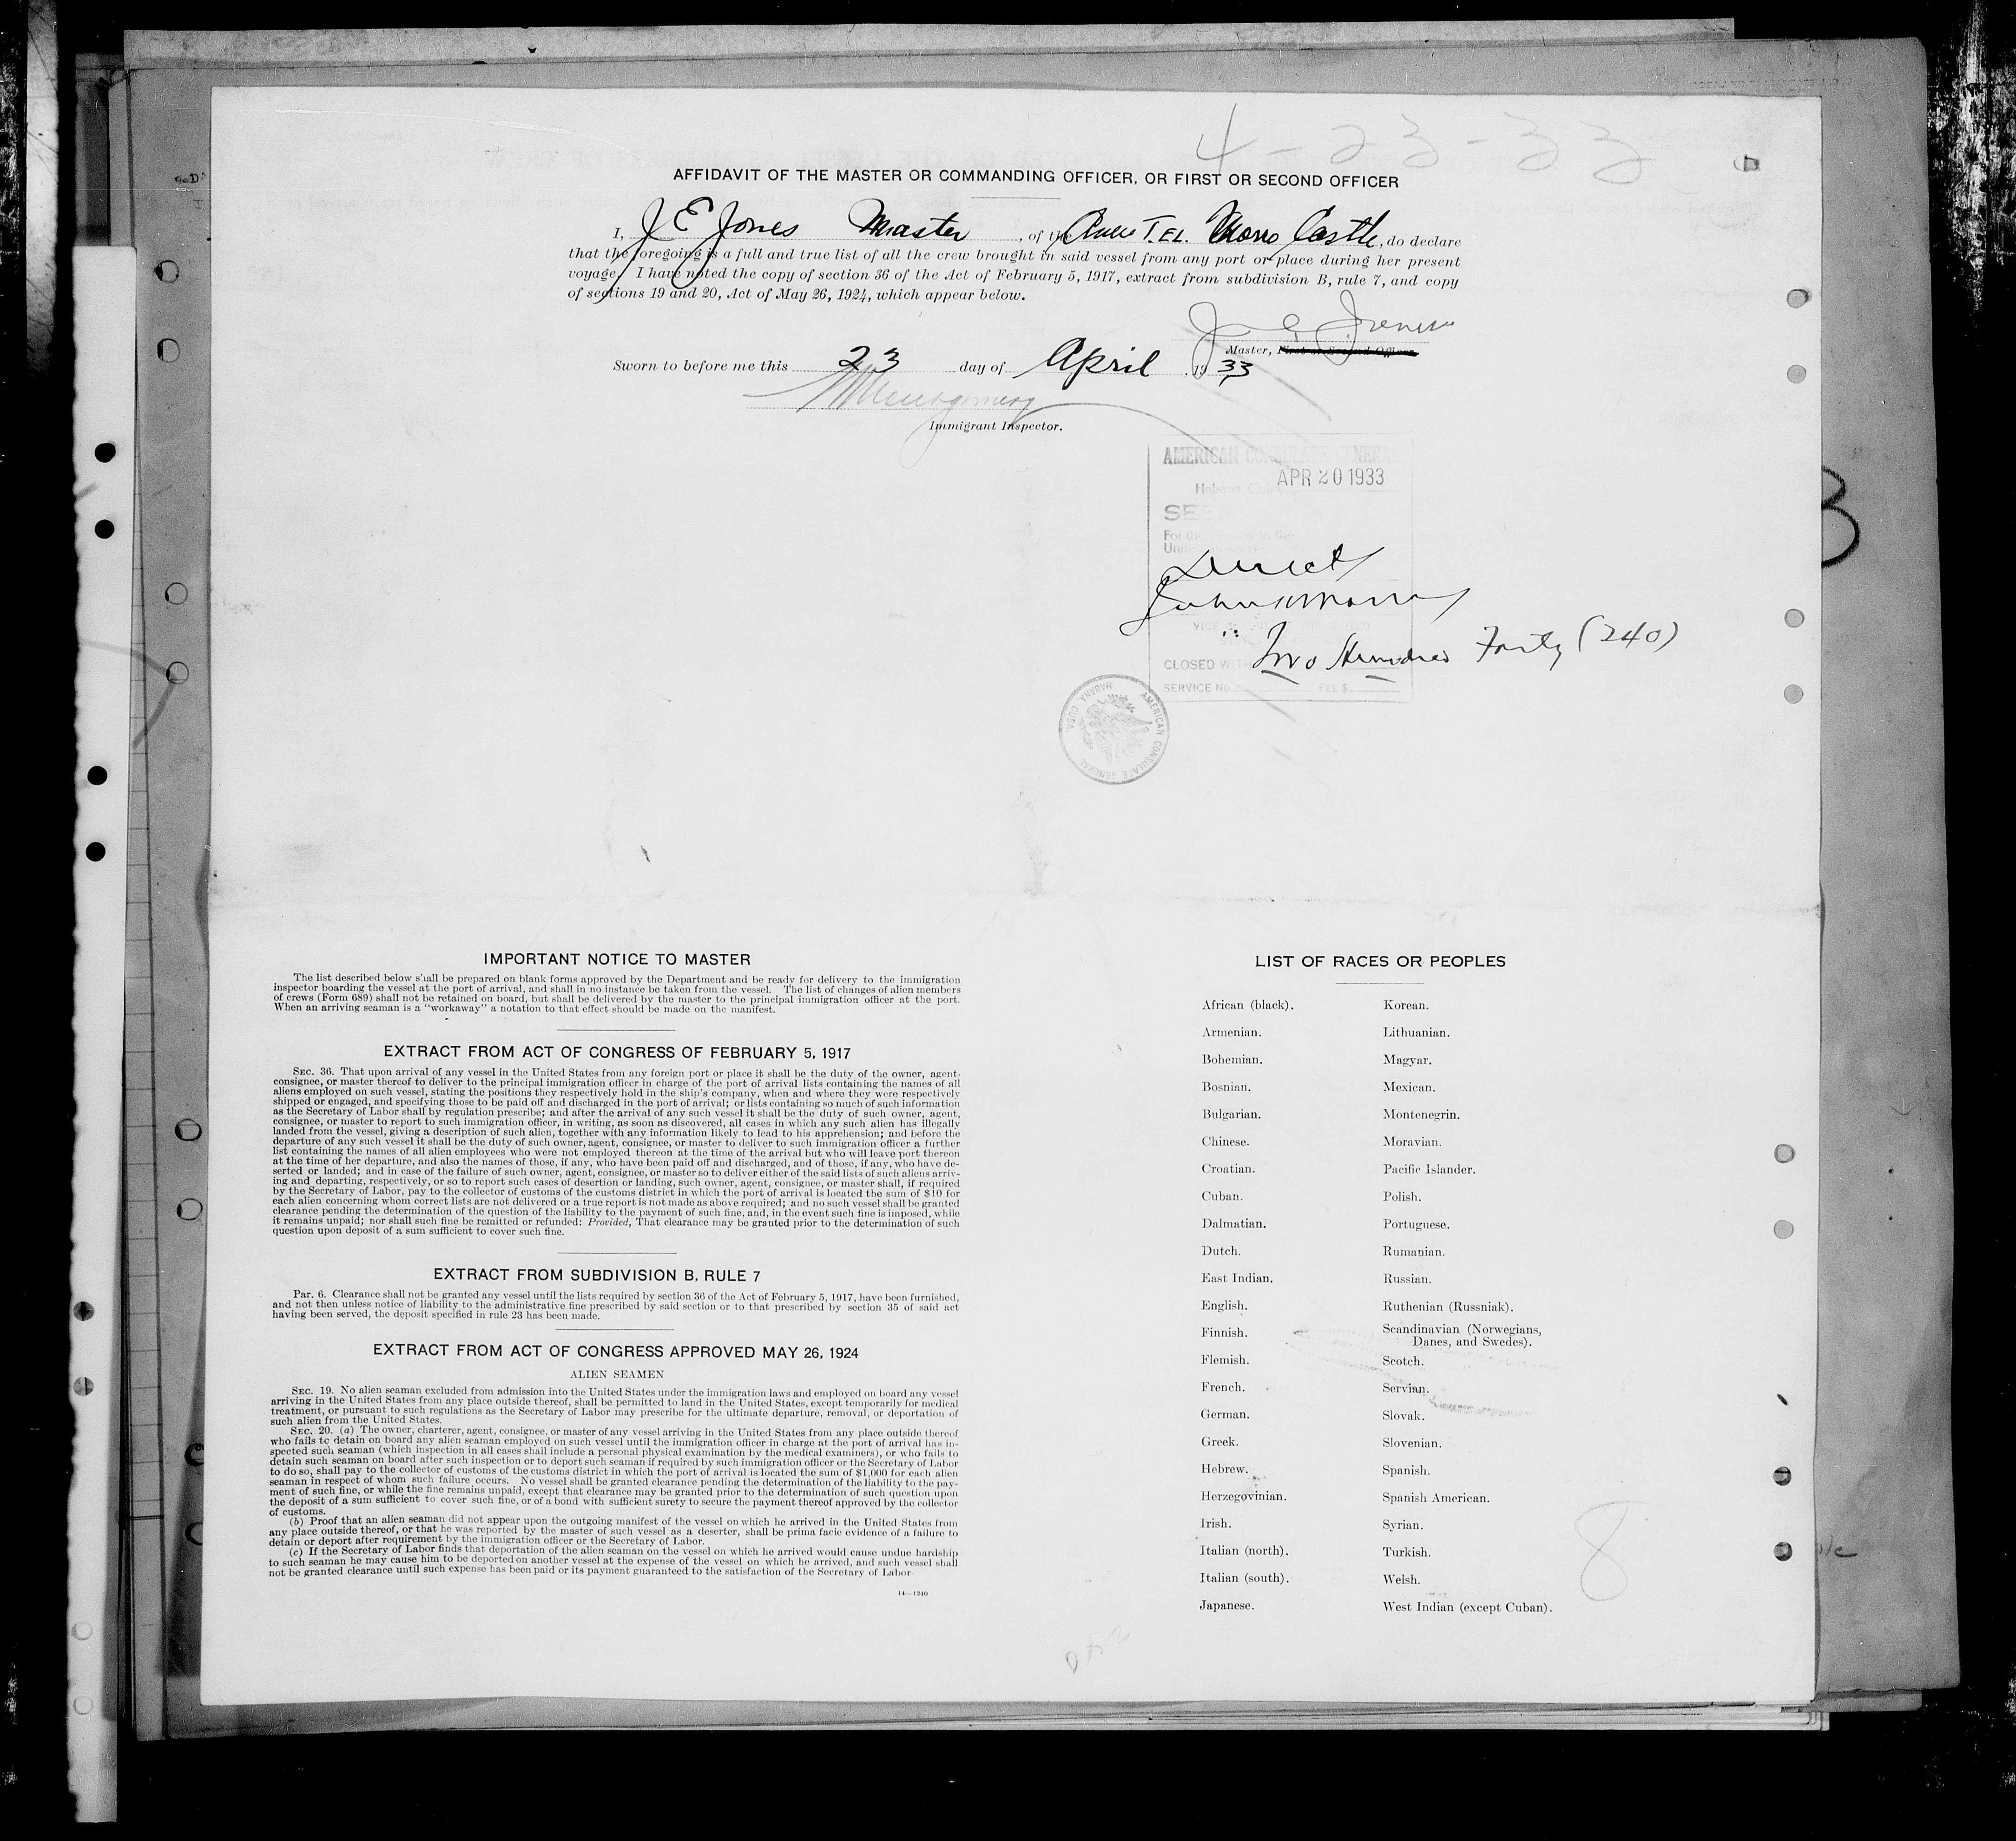 4-23-33
AFFIDAVIT OF THE MASTER OR COMMANDING OFFICER, OR FIRST OR SECOND OFFICER
I, J E Jones Master, of the T.EL. Morro Castle, do declare
that the foregoing is a full and true list of all the crew brought in said vessel from any port or place during her present
voyage. I have noted the copy of section 36 of the Act of February 5, 1917, extract from subdivision B, rule 7, and copy
of sections 19 and 20, Act of May 26, 1924, which appear below.
J E Jones
Master, First or Second Officer.
Sworn to before me this 23 day of April, 1933
Montgomery
Immigrant Inspector.
AMERICAN CONSULATE GENERAL
APR 20 1933
Habana, Cuba
SE
For the
Direct
Two Hundred Forty (240)
CLOSED WITH
SERVICE No. FEE $
AMERICAN CONSULATE GENERAL HABANA, CUBA
IMPORTANT NOTICE TO MASTER
The list described below shall be prepared on blank forms approved by the Department and be ready for delivery to the immigration
inspector boarding the vessel at the port of arrival, and shall in no instance be taken from the vessel. The list of changes of alien members
of crews (Form 689) shall not be retained on board, but shall be delivered by the master to the principal immigration officer at the port.
When an arriving seaman is a "workaway" a notation to that effect should be made on the manifest.
EXTRACT FROM ACT OF CONGRESS OF FEBRUARY 5, 1917
SEC. 36. That upon arrival of any vessel in the United States from any foreign port or place it shall be the duty of the owner, agent,
consignee, or master thereof to deliver to the principal immigration officer in charge of the port of arrival lists containing the names of all
aliens employed on such vessel, stating the positions they respectively hold in the ship's company, when and where they were respectively
shipped or engaged, and specifying those to be paid off and discharged in the port of arrival; or lists containing so much of such information
as the Secretary of Labor shall by regulation prescribe; and after the arrival of any such vessel it shall be the duty of such owner, agent,
consignee, or master to report to such immigration officer, in writing, as soon as discovered, all cases in which any such alien has illegally
landed from the vessel, giving a description of such alien, together with any information likely to lead to his apprehension; and before the
departure of any such vessel it shall be the duty of such owner, agent, consignee, or master to deliver to such immigration officer a further
list containing the names of all alien employees who were not employed thereon at the time of the arrival but who will leave port thereon
at the time of her departure, and also the names of those, if any, who have been paid off and discharged, and of those, if any, who have de-
serted or landed; and in case of the failure of such owner, agent, consignee, or master so to deliver either of the said lists of such aliens arriv-
ing and departing, respectively, or so to report such cases of desertion or landing, such owner, agent, consignee, or master shall, if required
by the Secretary of Labor, pay to the collector of customs of the customs district in which the port of arrival is located the sum of $10 for
each alien concerning whom correct lists are not delivered or a true report is not made as above required; and no such vessel shall be granted
clearance pending the determination of the question of the liability to the payment of such fine, and, in the event such fine is imposed, while
it remains unpaid; nor shall such fine be remitted or refunded: Provided, That clearance may be granted prior to the determination of such
question upon deposit of a sum sufficient to cover such fine.
EXTRACT FROM SUBDIVISION B, RULE 7
Par. 6. Clearance shall not be granted any vessel until the lists required by section 36 of the Act of February 5, 1917, have been furnished,
and not then unless notice of liability to the administrative fine prescribed by said section or to that prescribed by section 35 of said act
having been served, the deposit specified in rule 23 has been made.
EXTRACT FROM ACT OF CONGRESS APPROVED MAY 26, 1924
ALIEN SEAMEN
SEC. 19. No alien seaman excluded from admission into the United States under the immigration laws and employed on board any vessel
arriving in the United States from any place outside thereof, shall be permitted to land in the United States, except temporarily for medical
treatment, or pursuant to such regulations as the Secretary of Labor may prescribe for the ultimate departure, removal, or deportation of
such alien from the United States.
SEC. 20. (a) The owner, charterer, agent, consignee, or master of any vessel arriving in the United States from any place outside thereof
who fails to detain on board any alien seaman employed on such vessel until the immigration officer in charge at the port of arrival has in-
spected such seaman (which inspection in all cases shall include a personal physical examination by the medical examiners), or who fails to
detain such seaman on board after such inspection or to deport such seaman if required by such immigration officer or the Secretary of Labor
to do so, shall pay to the collector of customs of the customs district in which the port of arrival is located the sum of $1,000 for each alien
seaman in respect of whom such failure occurs. No vessel shall be granted clearance pending the determination of the liability to the pay-
ment of such fine, or while the fine remains unpaid, except that clearance may be granted prior to the determination of such question upon
the deposit of a sum sufficient to cover such fine, or of a bond with sufficient surety to secure the payment thereof approved by the collector
of customs.
(b) Proof that an alien seaman did not appear upon the outgoing manifest of the vessel on which he arrived in the United States from
any place outside thereof, or that he was reported by the master of such vessel as a deserter, shall be prima facie evidence of a failure to
detain or deport after requirement by the immigration officer or the Secretary of Labor.
(c) If the Secretary of Labor finds that deportation of the alien seaman on the vessel on which he arrived would cause undue hardship
to such seaman he may cause him to be deported on another vessel at the expense of the vessel on which he arrived, and such vessel shall
not be granted clearance until such expense has been paid or its payment guaranteed to the satisfaction of the Secretary of Labor.
14—1240
LIST OF RACES OR PEOPLES
African (black). Korean.
Armenian. Lithuanian.
Bohemian. Magyar.
Bosnian. Mexican.
Bulgarian. Montenegrin.
Chinese. Moravian.
Croatian. Pacific Islander.
Cuban. Polish.
Dalmatian. Portuguese.
Dutch. Rumanian.
East Indian. Russian.
English. Ruthenian (Russniak).
Finnish. Scandinavian (Norwegians,
Danes, and Swedes).
Flemish. Scotch.
French. Servian.
German. Slovak.
Greek. Slovenian.
Hebrew. Spanish.
Herzegovinian. Spanish American.
Irish. Syrian.
Italian (north). Turkish.
Italian (south). Welsh.
Japanese. West Indian (except Cuban).
8